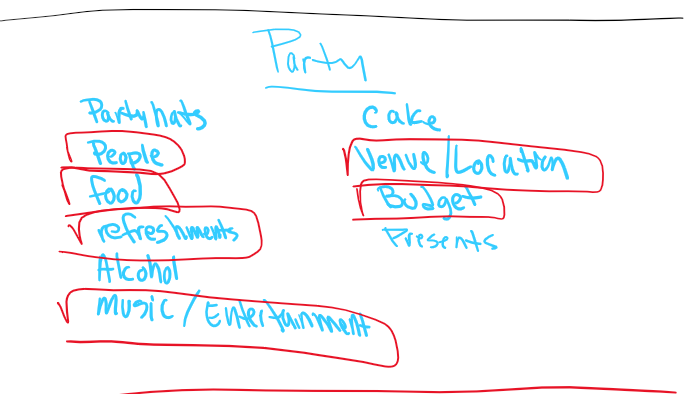 Party
Party hats
People
food
refreshments
Alcohol
Music / Entertainment
Cake
Venue / Location
Budget
Presents